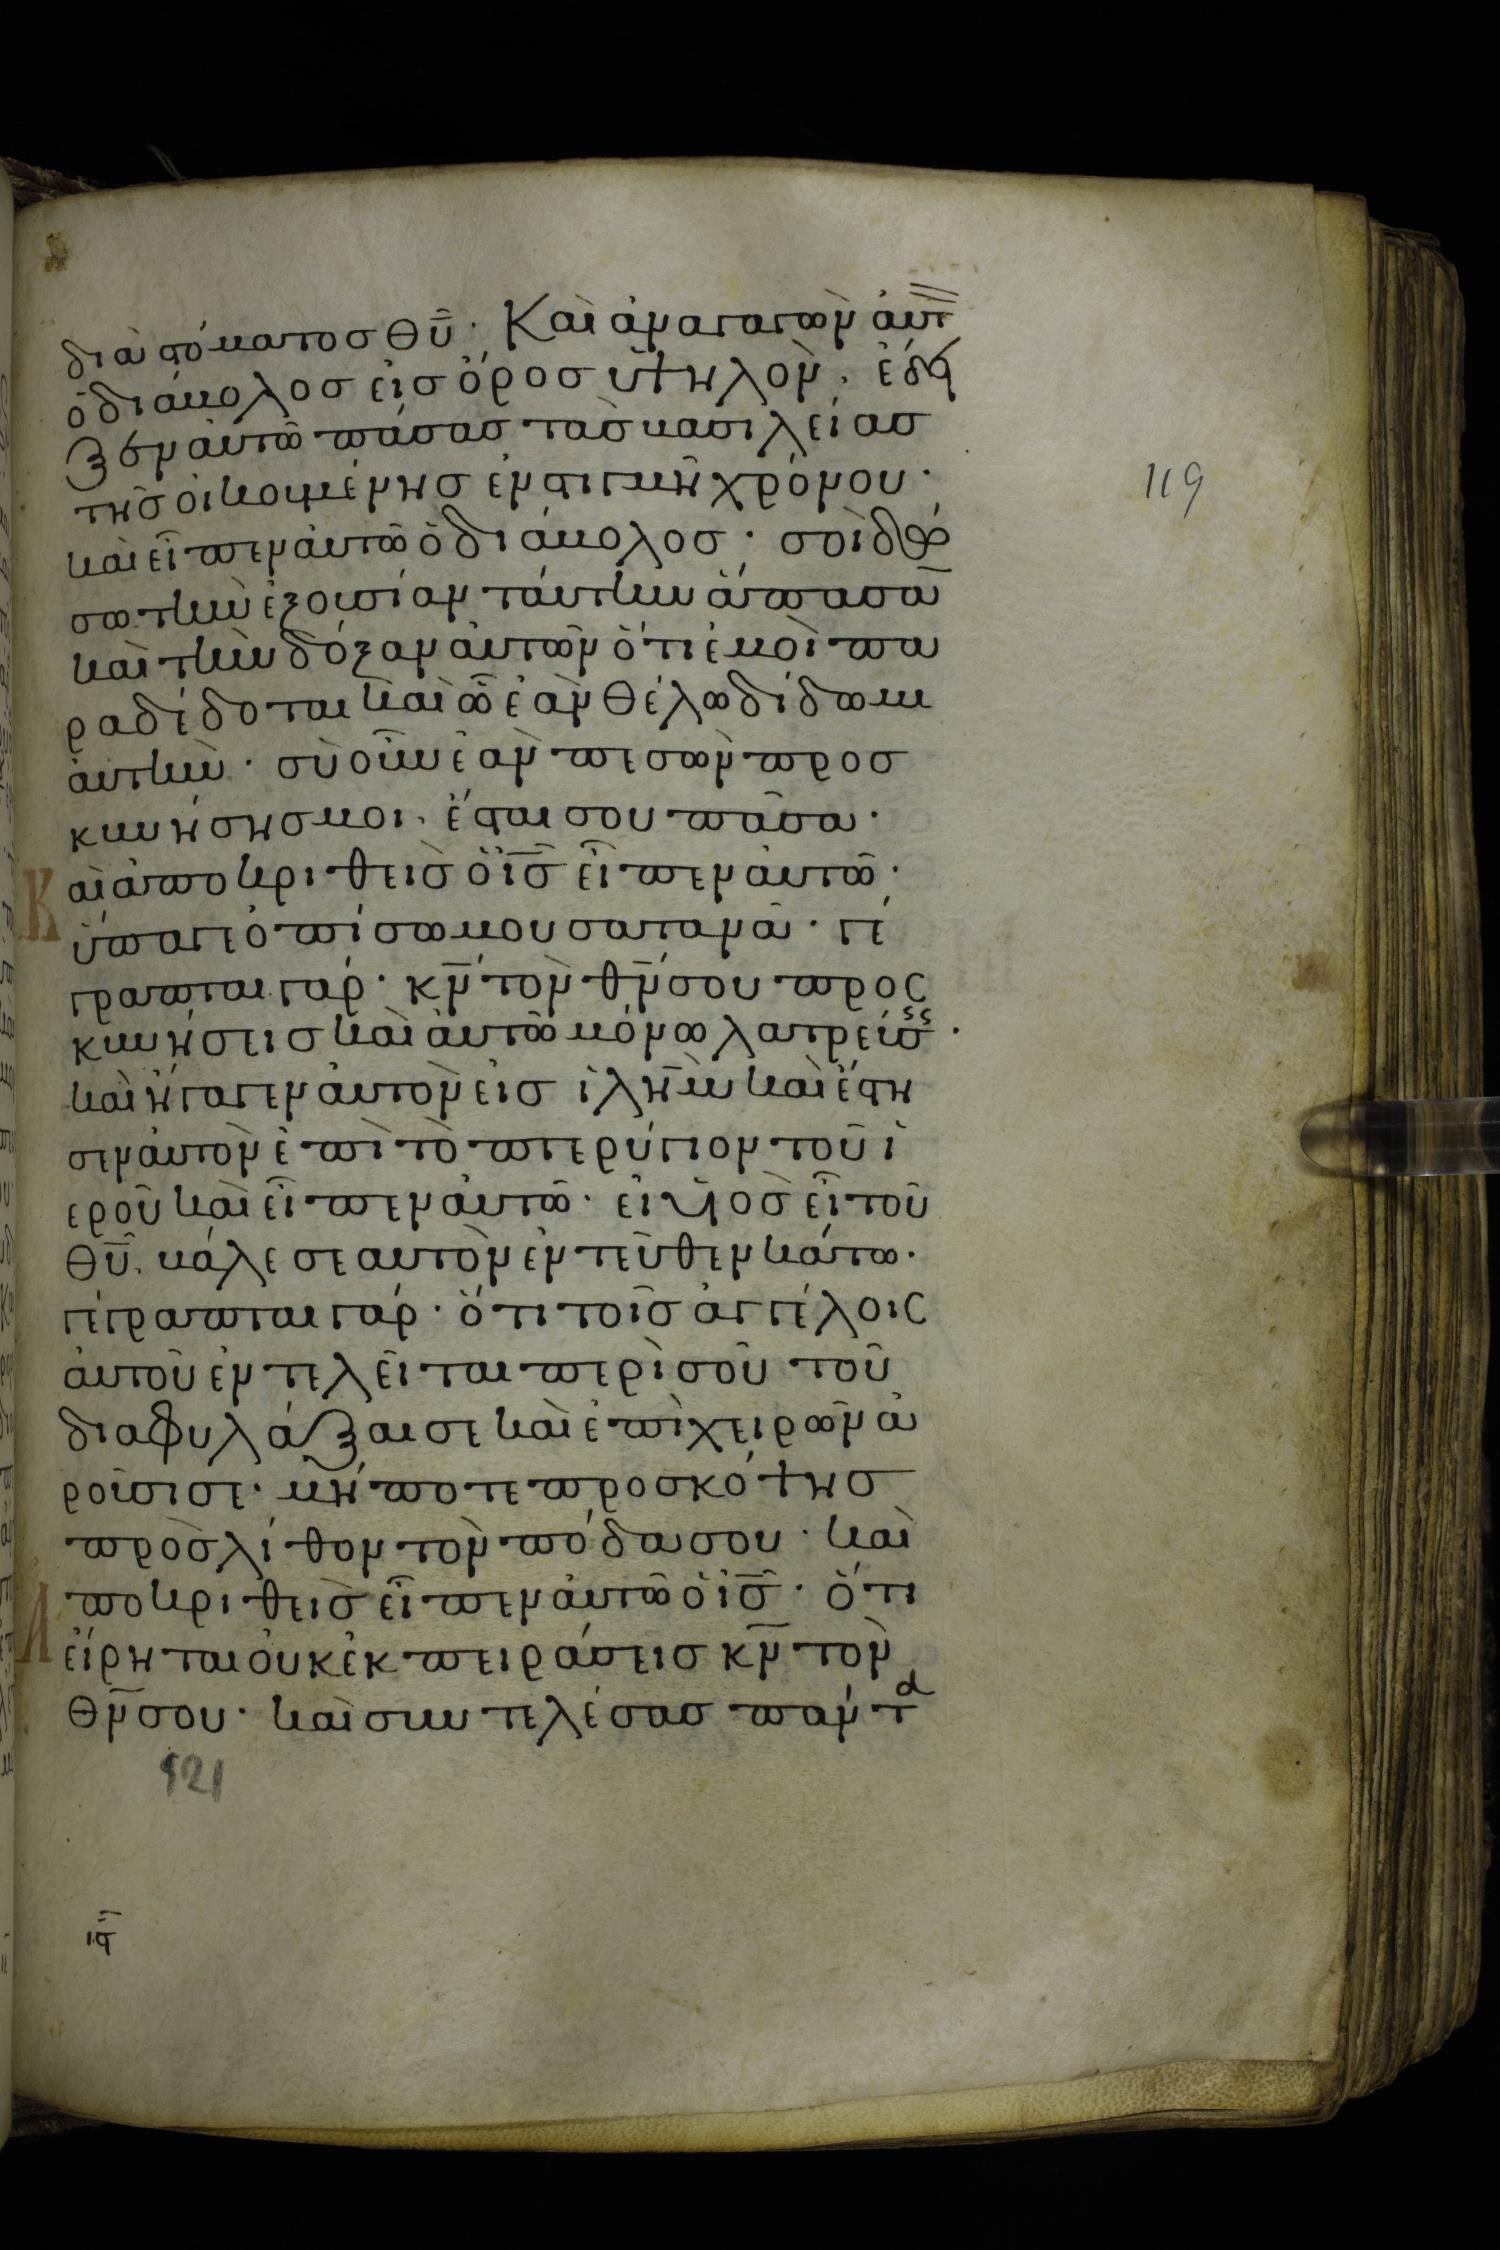 διὰ στόματος θῦ· Καὶ ἀναγαγὼν ἀυτ
ὁ διάβολος εἰς ὄρος ὑψηλὸν· ἔδει
ξεν ἀυτῶ πάσας τὰς βασιλείας
τῆς οἰκουμένης ἐν στιγμῆ χρόνου·
καὶ εἶπεν ἀυτῶ ὁ διάβολος· σοὶ δώ
σω τὴν ἐξουσίαν τάυτην ἅπασα̅
καὶ τὴν δόξαν ἀυτῶν ὅτι ἐμοὶ πα
ραδέδοται καὶ ὧ ἐὰν θέλω δίδωμι
ἀυτὴν· σὺ οὖν ἐὰν πεσὼν προσ
κυνήσης μοι· ἔσται σου πᾶσα·
Καὶ ἀποκριθεὶς ὁ ἰς̅ εἶπεν ἀυτῶ·
ὕπαγε ὀπίσω μου σατανᾶ· γέ
γραπται γάρ· κν̅ τὸν θν̅ σου προς
κυνήσεις καὶ ἀυτῶ μόνω λατρεύσς·
καὶ ἤγαγεν ἀυτὸν εἰς ἱλὴ̅μ καὶ ἔστη
σεν ἀυτὸν ἐπὶ τὸ πτερύγιον τοῦ ἱ
εροῦ καὶ εἶπεν ἀυτῶ· εἰ υἱὸς εἶ τοῦ
θῦ· βάλε σεαυτὸν ἐντεῦθεν κάτω·
γέγραπται γάρ· ὅτι τοῖς ἀγγέλοις
ἀυτοῦ ἐντελεῖται περὶ σοῦ τοῦ
διαφυλάξαι σε καὶ ἐπὶ χειρῶν ἀ
ροῦσι σε· μήποτε προσκόψης
πρὸς λίθον τὸν πόδα σου· καὶ
Ἀποκριθεὶς εἶπεν ἀυτῶ ὁ ἰς̅· ὅτι
εἴρηται ὀυκ ἐκπειράσεις κν̅ τὸν
θν̅ σου· καὶ συντελέσας πάντα
119
121
ις